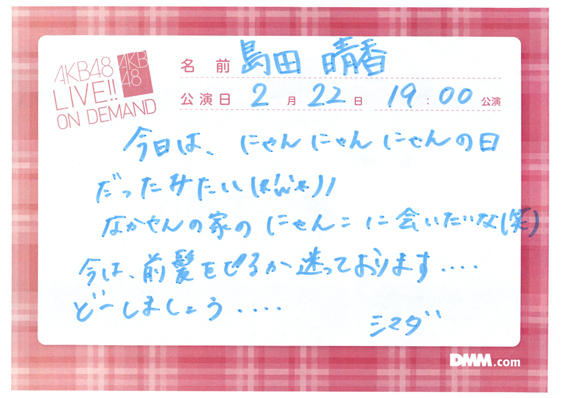 AKB48
LIVE!!
ON DEMAND
AKB
48
名 前 島田 晴香
公演日 2 月 22 日 19:00 公演
今日は、にゃんにゃんにゃんの日
だったみたい
なかやんの家の にゃんこに会いたいな(笑)
今は、前髪をどうするか迷っております....
どーしましょう....
シマダ
DMM.com